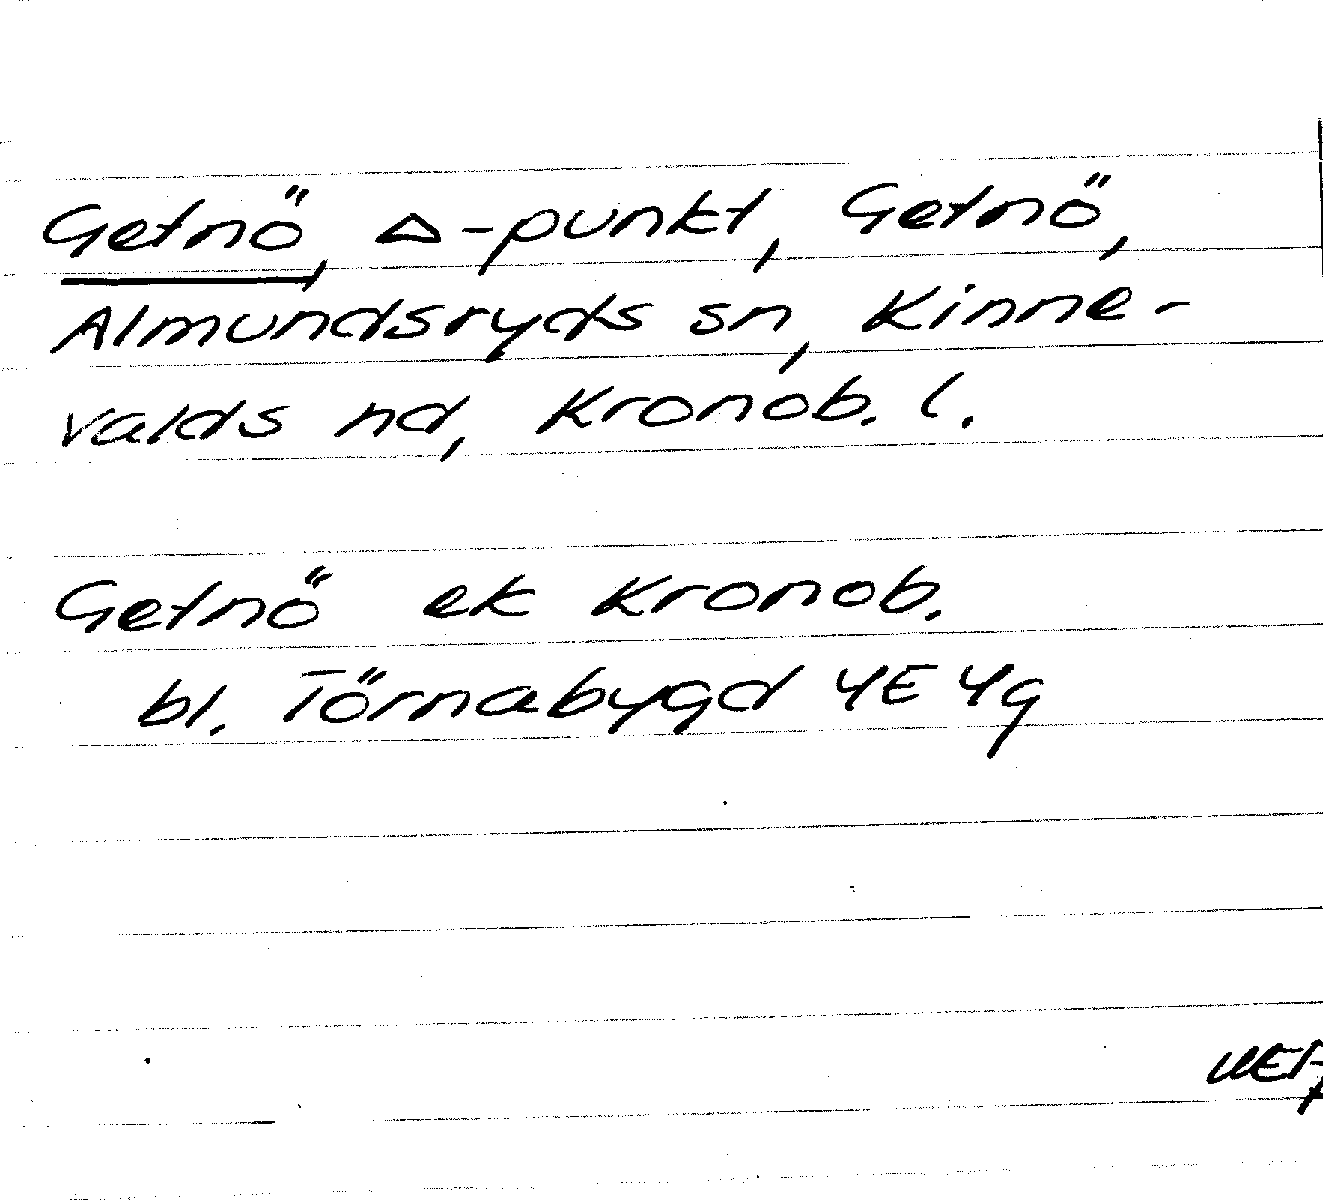 Getnö, △-punkt, Getnö,
Almundsryds sn, Kinne-
valds hd, Kronob. l.
Getnö ek Kronob.
bl. Törnabygd 4E 4g